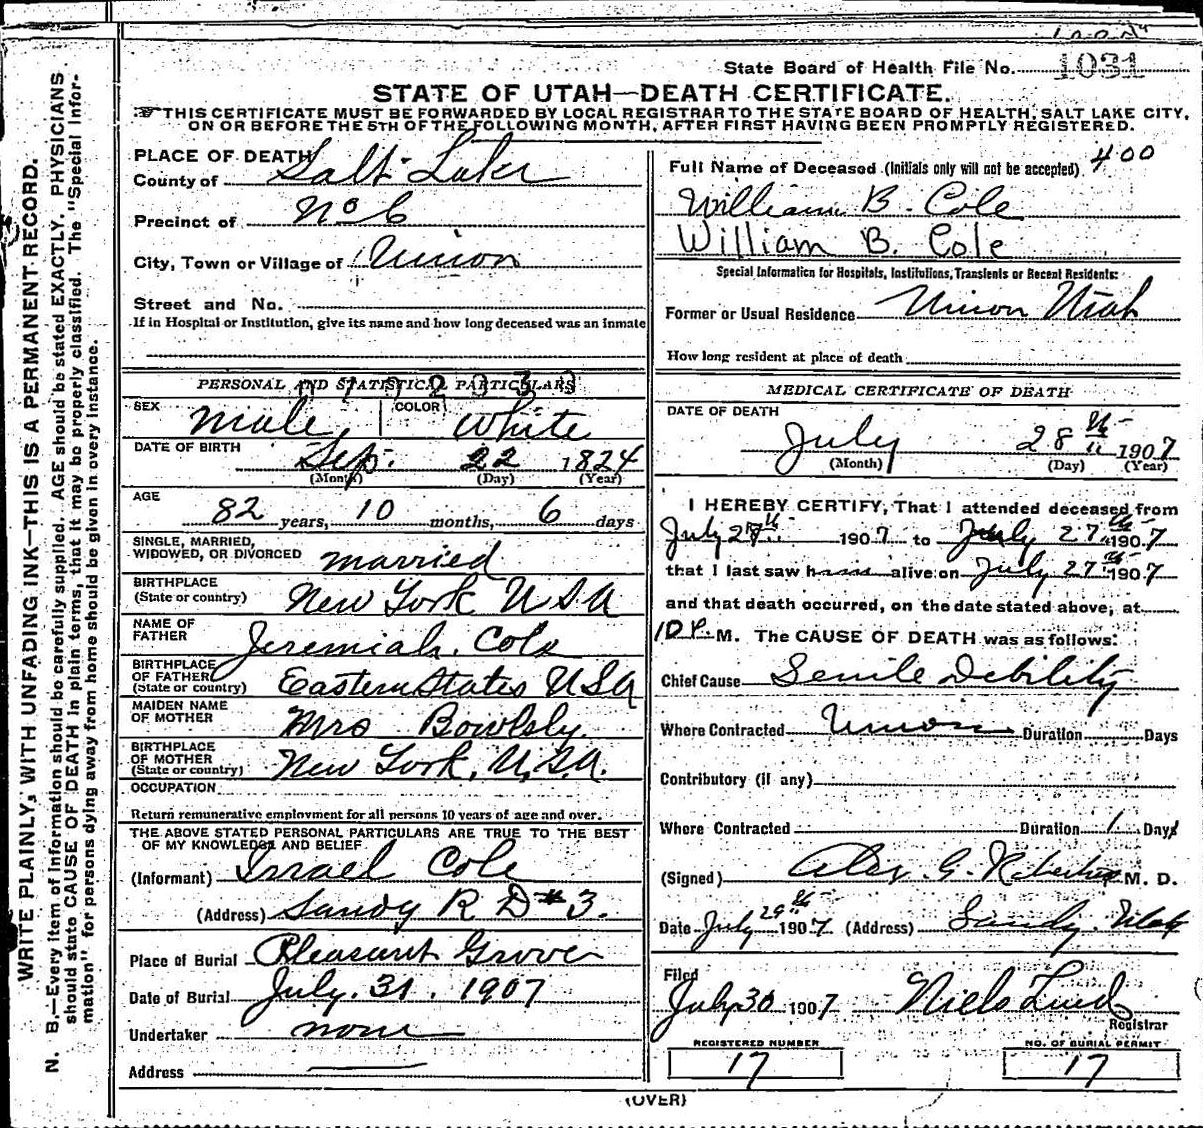 State Board of Health File No. 1031
STATE OF UTAH—DEATH CERTIFICATE.
THIS CERTIFICATE MUST BE FORWARDED BY LOCAL REGISTRAR TO THE STATE BOARD OF HEALTH, SALT LAKE CITY,
ON OR BEFORE THE 5TH OF THE FOLLOWING MONTH, AFTER FIRST HAVING BEEN PROMPTLY REGISTERED.
WRITE PLAINLY, WITH UNFADING INK—THIS IS A PERMANENT RECORD.
N. B.—Every item of information should be carefully supplied. AGE should be stated EXACTLY. PHYSICIANS
should state CAUSE OF DEATH in plain terms, that it may be properly classified. The "Special Infor-
mation" for persons dying away from home should be given in every instance.
PLACE OF DEATH
County of Salt Lake
Precinct of No 6
City, Town or Village of Union
Street and No.
If in Hospital or Institution, give its name and how long deceased was an inmate
PERSONAL AND STATISTICAL PARTICULARS
SEX male COLOR White
DATE OF BIRTH Sep. 22 1824
(Month) (Day) (Year)
AGE
82 years, 10 months, 6 days
SINGLE, MARRIED,
WIDOWED, OR DIVORCED married
BIRTHPLACE
(State or country) New York USA
NAME OF
FATHER Jeremiah Cole
BIRTHPLACE
OF FATHER
(State or country) Eastern States USA
MAIDEN NAME
OF MOTHER Mrs Bowlsly
BIRTHPLACE
OF MOTHER
(State or country) New York, U.S.A.
OCCUPATION
Return remunerative employment for all persons 10 years of age and over.
THE ABOVE STATED PERSONAL PARTICULARS ARE TRUE TO THE BEST
OF MY KNOWLEDGE AND BELIEF
(Informant) Israel Cole
(Address) Sandy R D # 3.
Place of Burial Pleasant Grove
Date of Burial July. 31. 1907
Undertaker none
Address
Full Name of Deceased (Initials only will not be accepted) 400
William B. Cole
William B. Cole
Special Information for Hospitals, Institutions, Transients or Recent Residents:
Former or Usual Residence Union Utah
How long resident at place of death
MEDICAL CERTIFICATE OF DEATH
DATE OF DEATH
July 28th 1907
(Month) (Day) (Year)
I HEREBY CERTIFY, That I attended deceased from
July 27th 1907 to July 27th 1907
that I last saw him alive on July 27th 1907
and that death occurred, on the date stated above, at
10 P. M. The CAUSE OF DEATH was as follows:
Chief Cause Senile Debility
Where Contracted Union Duration Days
Contributory (if any)
Where Contracted Duration 1 Days
(Signed) Alex. G. Robertson M. D.
Date July 29th 1907 (Address) Sandy. Utah
Filed
July 30 1907 Niels Lind
Registrar
REGISTERED NUMBER NO. OF BURIAL PERMIT
17 17
(OVER)